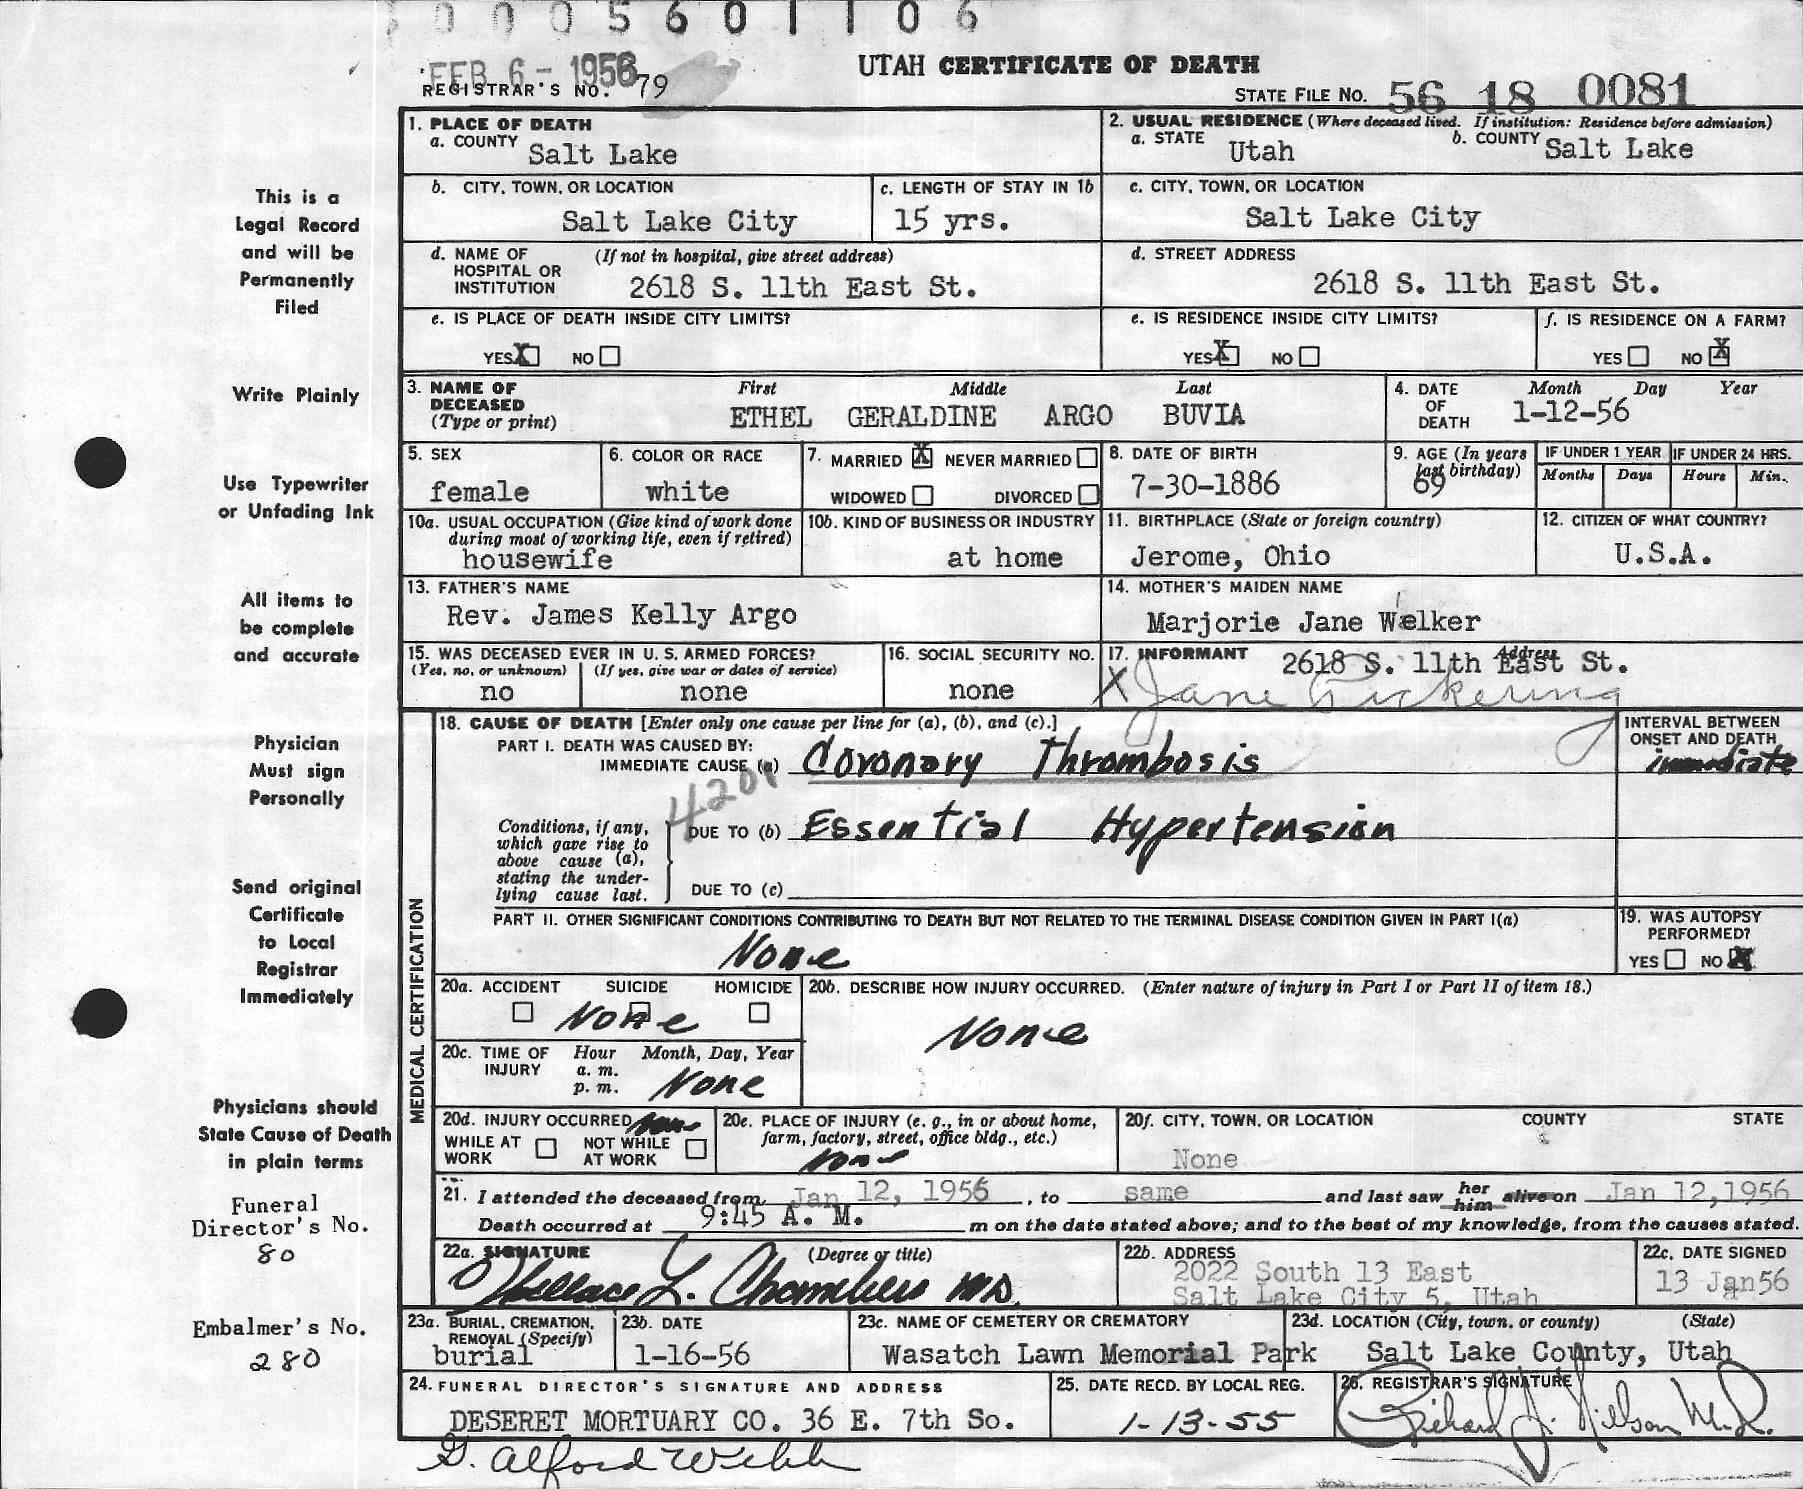 0005601106
FEB 6 - 1956
UTAH CERTIFICATE OF DEATH
REGISTRAR'S NO. 79
STATE FILE NO. 56 18 0081
This is a
Legal Record
and will be
Permanently
Filed
Write Plainly
Use Typewriter
or Unfading Ink
All items to
be complete
and accurate
Physician
Must sign
Personally
Send original
Certificate
to Local
Registrar
Immediately
Physicians should
State Cause of Death
in plain terms
Funeral
Director's No.
80
Embalmer's No.
280
1. PLACE OF DEATH
a. COUNTY Salt Lake
2. USUAL RESIDENCE (Where deceased lived. If institution: Residence before admission)
a. STATE Utah b. COUNTY Salt Lake
b. CITY, TOWN, OR LOCATION
Salt Lake City
c. LENGTH OF STAY IN 1b
15 yrs.
c. CITY, TOWN, OR LOCATION
Salt Lake City
d. NAME OF (If not in hospital, give street address)
HOSPITAL OR
INSTITUTION 2618 S. 11th East St.
d. STREET ADDRESS
2618 S. 11th East St.
e. IS PLACE OF DEATH INSIDE CITY LIMITS?
YES X NO
e. IS RESIDENCE INSIDE CITY LIMITS?
YES X NO
f. IS RESIDENCE ON A FARM?
YES NO X
3. NAME OF First Middle Last
DECEASED
(Type or print) ETHEL GERALDINE ARGO BUVIA
4. DATE Month Day Year
OF
DEATH 1-12-56
5. SEX
female
6. COLOR OR RACE
white
7. MARRIED X NEVER MARRIED
WIDOWED DIVORCED
8. DATE OF BIRTH
7-30-1886
9. AGE (In years
last birthday)
69
IF UNDER 1 YEAR
Months Days
IF UNDER 24 HRS.
Hours Min.
10a. USUAL OCCUPATION (Give kind of work done
during most of working life, even if retired)
housewife
10b. KIND OF BUSINESS OR INDUSTRY
at home
11. BIRTHPLACE (State or foreign country)
Jerome, Ohio
12. CITIZEN OF WHAT COUNTRY?
U.S.A.
13. FATHER'S NAME
Rev. James Kelly Argo
14. MOTHER'S MAIDEN NAME
Marjorie Jane Welker
15. WAS DECEASED EVER IN U. S. ARMED FORCES?
(Yes, no, or unknown) (If yes, give war or dates of service)
no none
16. SOCIAL SECURITY NO.
none
17. INFORMANT Address
2618 S. 11th East St.
X Jane Pickering
MEDICAL CERTIFICATION
18. CAUSE OF DEATH [Enter only one cause per line for (a), (b), and (c).]
PART I. DEATH WAS CAUSED BY:
IMMEDIATE CAUSE (a) Coronary Thrombosis
4201
Conditions, if any,
which gave rise to
above cause (a),
stating the under-
lying cause last.
DUE TO (b) Essential Hypertension
DUE TO (c)
INTERVAL BETWEEN
ONSET AND DEATH
immediate
PART II. OTHER SIGNIFICANT CONDITIONS CONTRIBUTING TO DEATH BUT NOT RELATED TO THE TERMINAL DISEASE CONDITION GIVEN IN PART I(a)
None
19. WAS AUTOPSY
PERFORMED?
YES NO X
20a. ACCIDENT SUICIDE HOMICIDE
None
20b. DESCRIBE HOW INJURY OCCURRED. (Enter nature of injury in Part I or Part II of item 18.)
None
20c. TIME OF Hour Month, Day, Year
INJURY a. m.
p. m. None
20d. INJURY OCCURRED None
WHILE AT NOT WHILE
WORK AT WORK
20e. PLACE OF INJURY (e. g., in or about home,
farm, factory, street, office bldg., etc.)
None
20f. CITY, TOWN, OR LOCATION COUNTY STATE
None
21. I attended the deceased from Jan 12, 1956, to same and last saw her him alive on Jan 12,1956
Death occurred at 9:45 A. M. m on the date stated above; and to the best of my knowledge, from the causes stated.
22a. SIGNATURE (Degree or title)
Wallace L. Chambers MD.
22b. ADDRESS
2022 South 13 East
Salt Lake City 5, Utah
22c. DATE SIGNED
13 Jan56
23a. BURIAL, CREMATION,
REMOVAL (Specify)
burial
23b. DATE
1-16-56
23c. NAME OF CEMETERY OR CREMATORY
Wasatch Lawn Memorial Park
23d. LOCATION (City, town, or county) (State)
Salt Lake County, Utah
24. FUNERAL DIRECTOR'S SIGNATURE AND ADDRESS
DESERET MORTUARY CO. 36 E. 7th So.
G. Alford Webb
25. DATE RECD. BY LOCAL REG.
1-13-55
26. REGISTRAR'S SIGNATURE
Richard J. Nielson M.D.